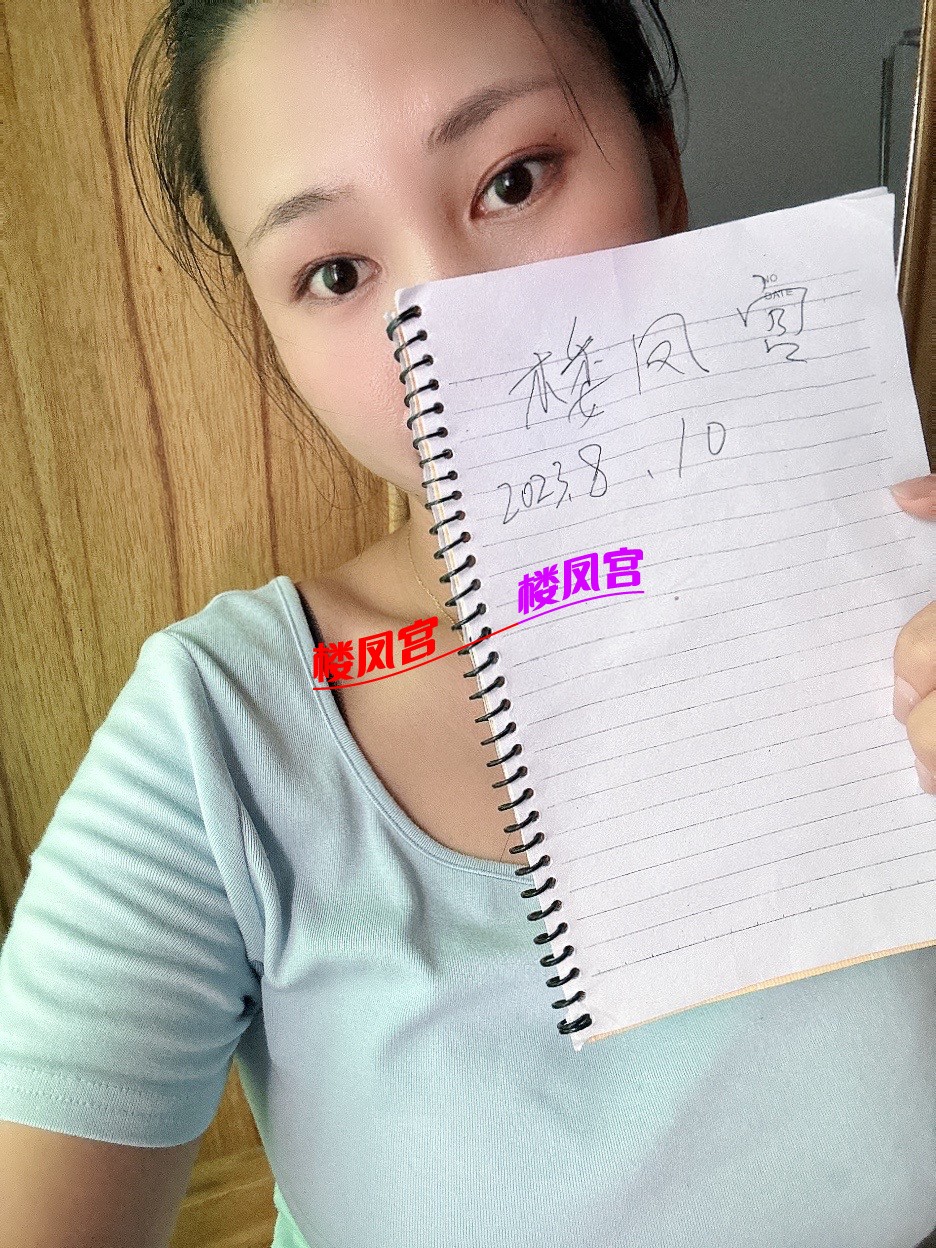 NO
DATE
楼凤宫
2023.8.10
楼凤宫
楼凤宫